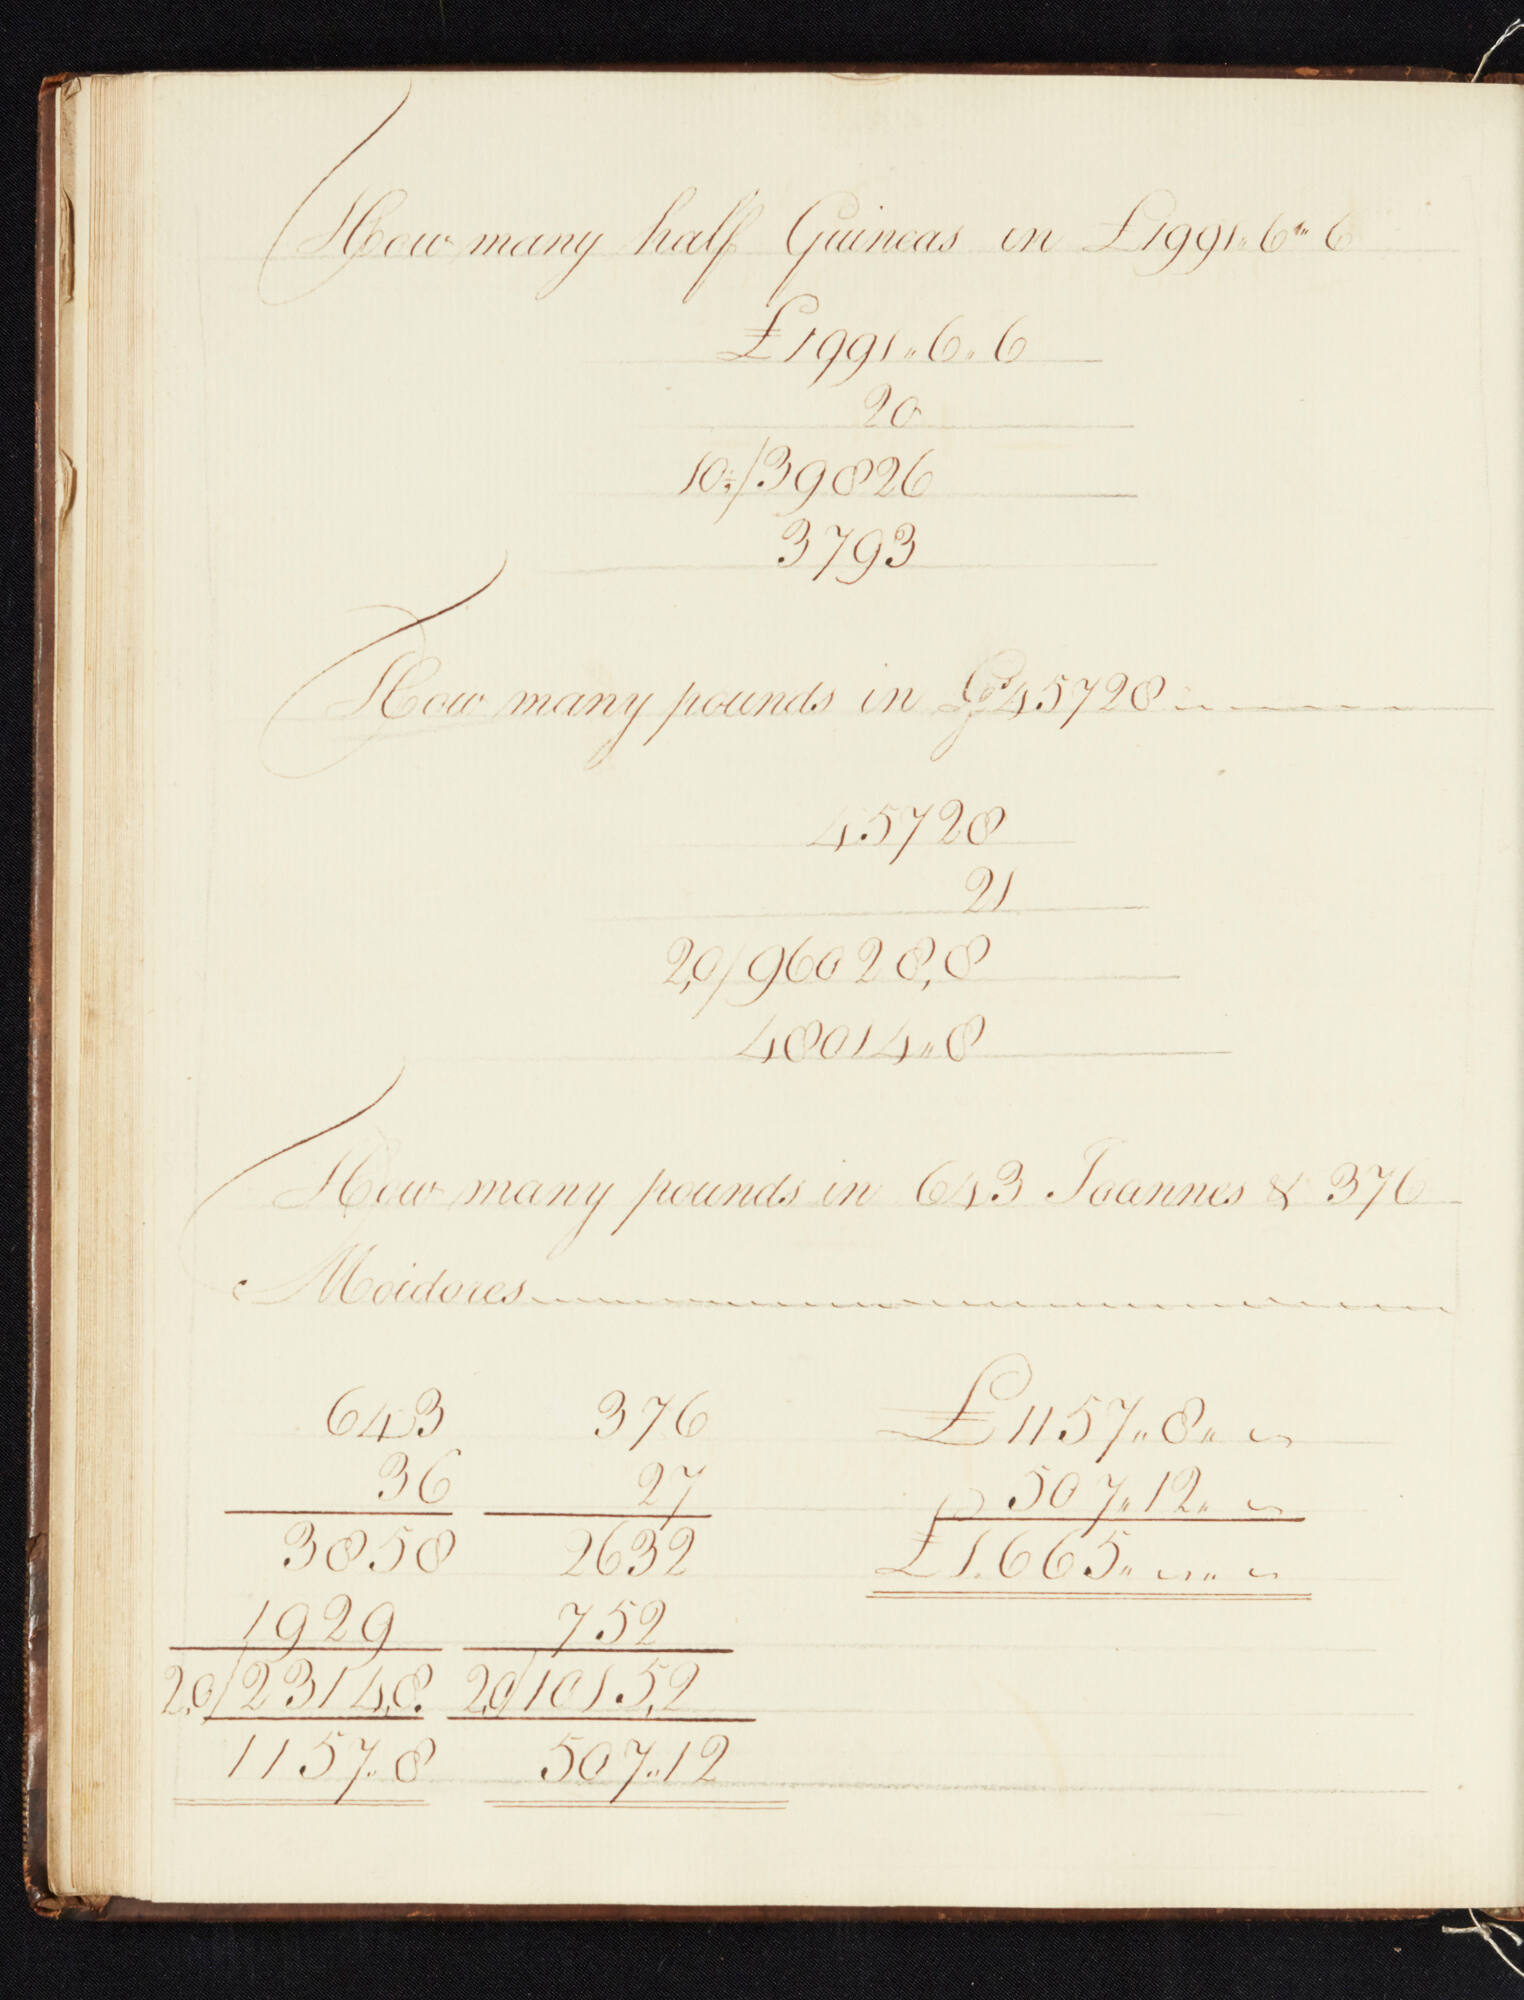 How many half Guineas in £1991〃6〃6
£1991〃6〃6
20
10½/39826
3793
How many pounds in Gs 45728
45728
21
2,0/96028,8
48014〃8
How many pounds in 643 Joannes & 376
Moidores
643 376 £1157〃8〃
36 27 507〃12〃
3858 2632 £1.665〃 〃
1929 752
2,0/2314,8. 2,0/1015,2
1157〃8 507〃12